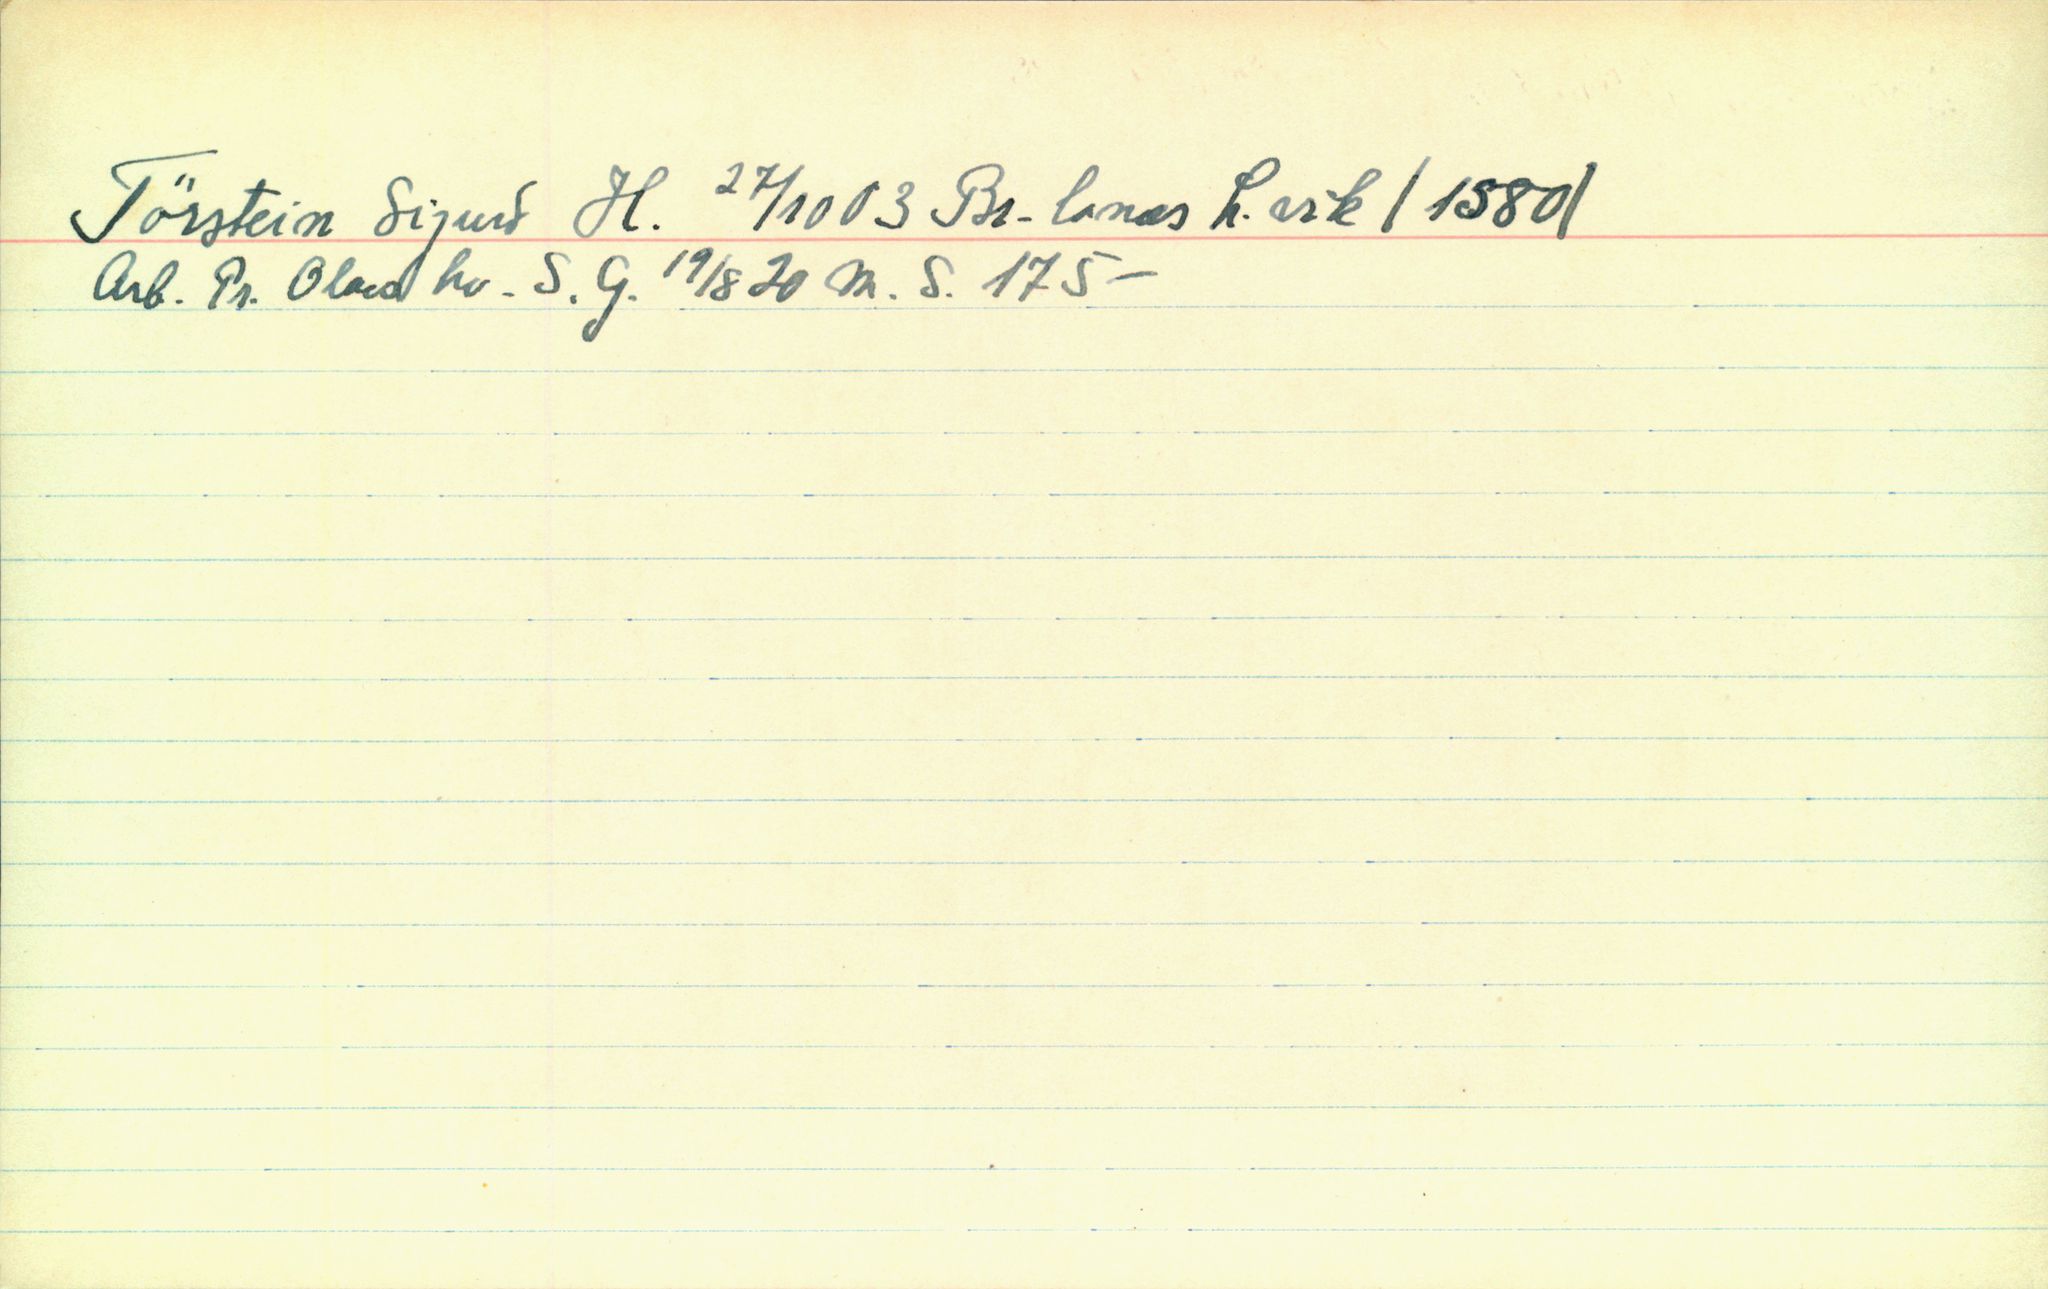 Törstein Sigurd H. 27/10 03 Br-lanæs L.vik / 1580/
Arb. Pr. Olava hv. S. G. 19/8 20 M. S. 175-